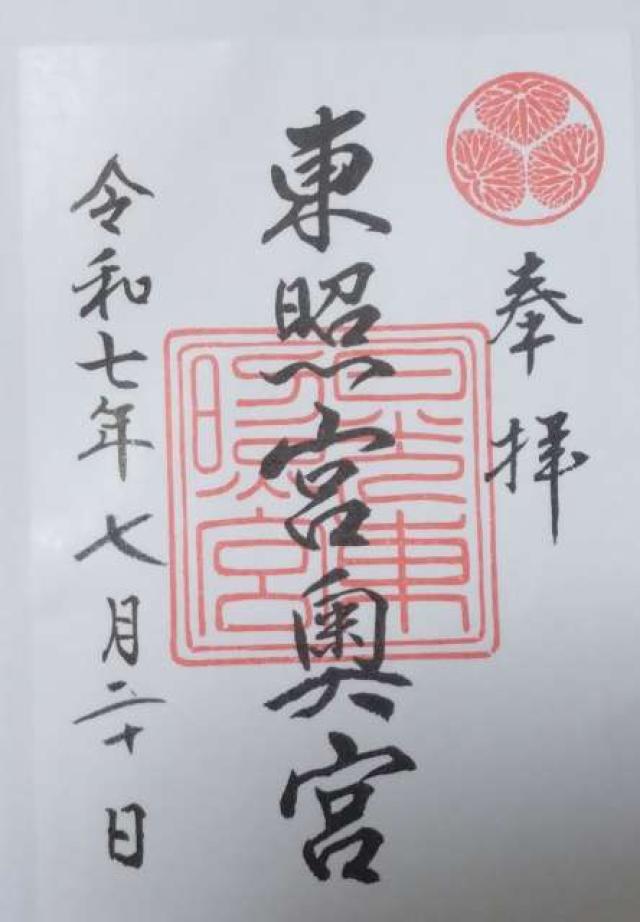 奉拝
東照宮奥宮
日光東照宮
令和七年七月二十日